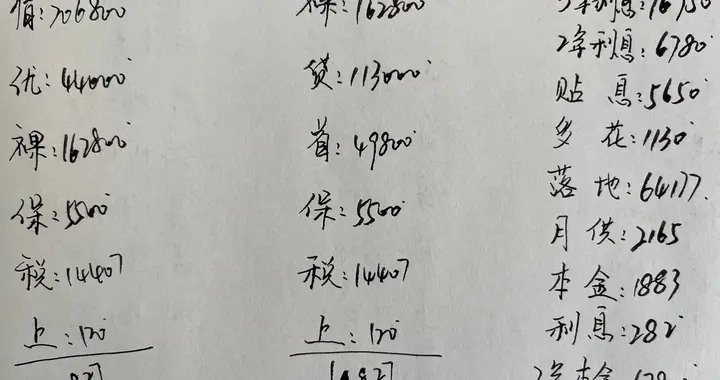 值:206800
优:44000
裸:162800
保:5500
税:14407
上:120
裸:162800
贷:113000
首:49800
保:5500
税:14407
上:120
2年利息:6780
贴息:5650
多花:1130
落地:64177.
月供:2165
本金:1883
利息:282